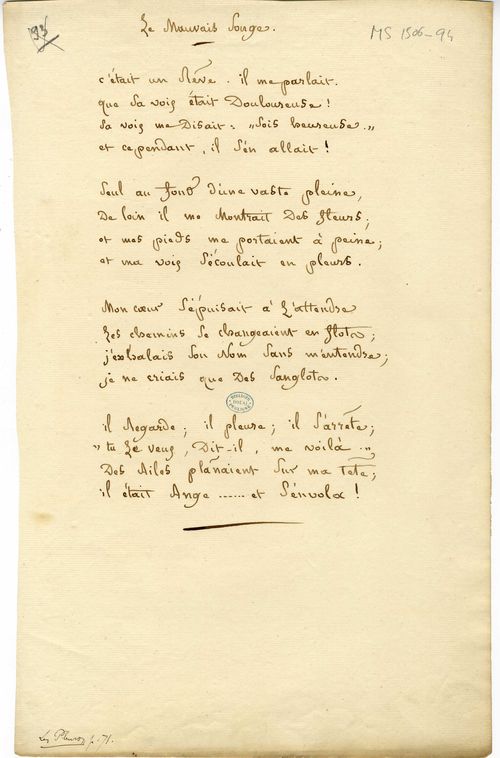 93
MS 1506-94
Le Mauvais Songe.
c'était un Rêve. il me parlait.
que sa voix était Douloureuse !
sa voix me Disait : „Sois heureuse.„
et cependant, il s'en allait !
Seul au fond d'une vaste pleine,
De loin il me Montrait Des fleurs ;
et mes pieds me portaient à peine ;
et ma voix s'écoulait en pleurs.
Mon cœur s'épuisait à L'attendre
Les chemins se changeaient en flots ;
j'exhalais son Nom sans m'entendre ;
je ne criais que Des sanglots.
il Regarde ; il pleure ; il s'arrête ;
„ tu Le veux, Dit-il, me voilà .„
Des Ailes plânaient sur ma tête ;
il était Ange ...... et s'envola !
Les Pleurs p. 171.